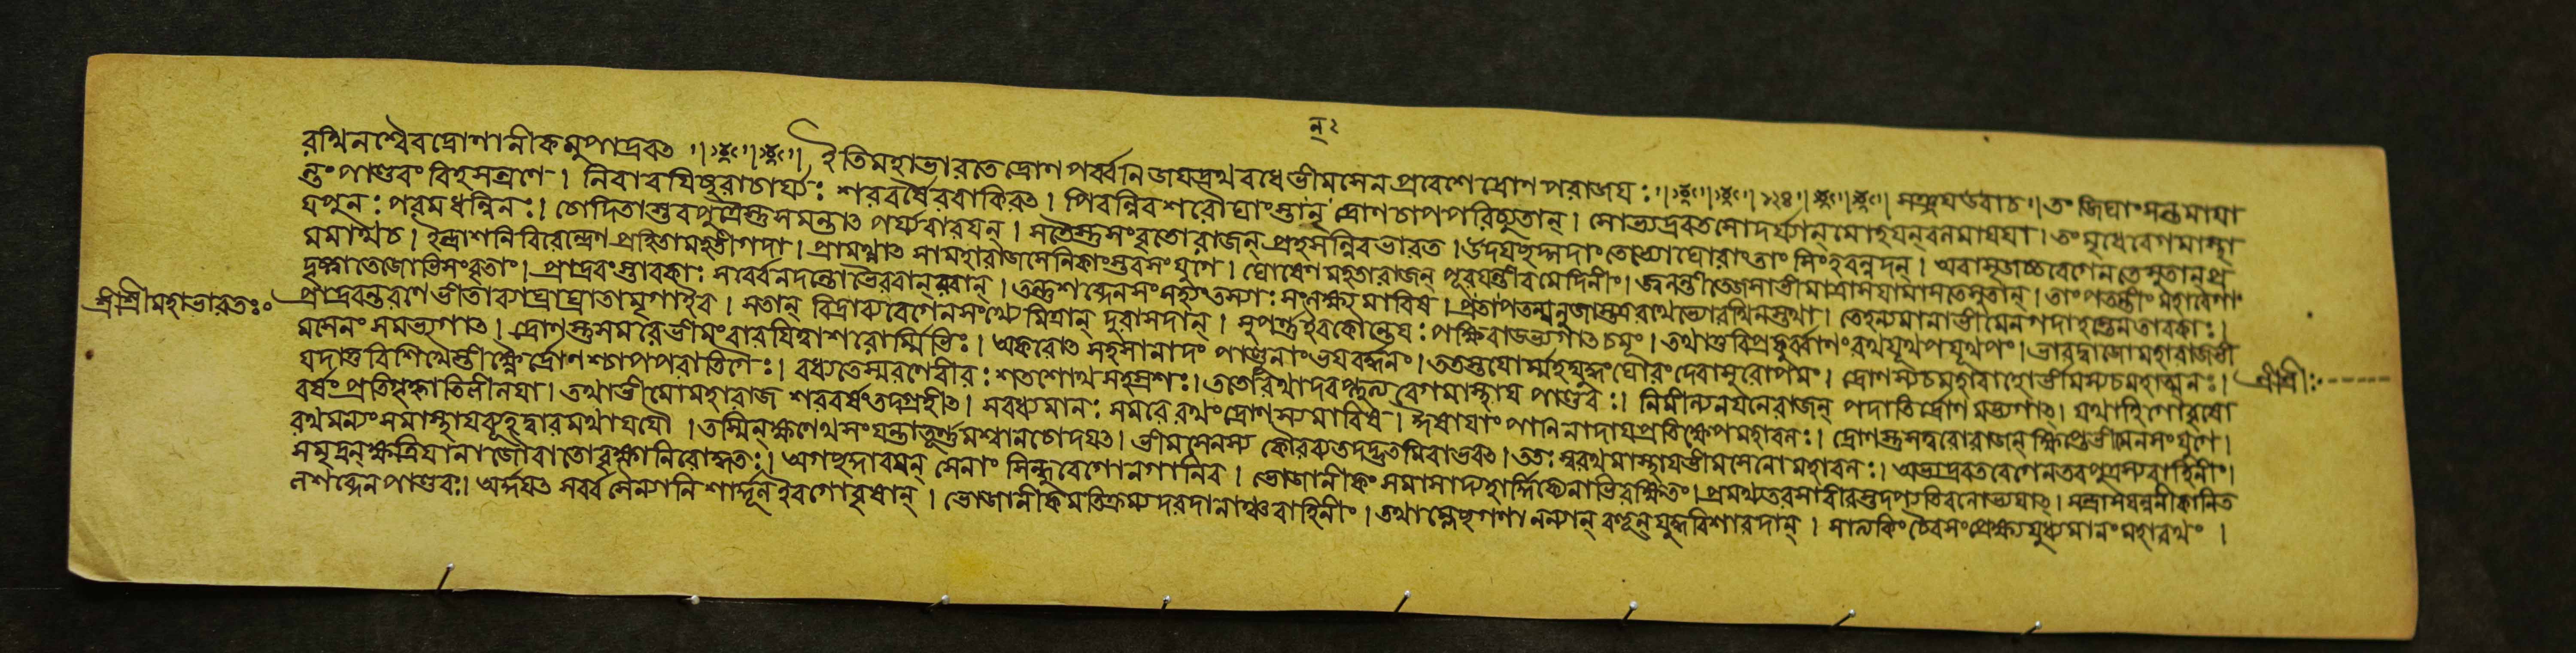 ন্ ২
রথিনশ্চৈব দ্রোণানীকমুপাদ্রবৎ ॥ ইতি মহাভারতে দ্রোণপর্ব্বনি জয়দ্রথবধে ভীমসেনপ্রবেশে দ্রোণপরাজয়ঃ ॥ ১২৪ ॥ সঞ্জয় উবাচ । তং জিঘাংসন্তমায়া
ন্তং পাণ্ডবং বিহসন্রণে । নিবারয়িষ্ণুরাচার্য্যঃ শরবর্ষৈরবাকিরৎ । পিবন্নিব শরৌঘাংস্তান্ দ্রোণচাপপরিচ্যুতান্ । সোভ্যদ্রবত সোদর্য্যান্ মোহয়ন্ বলমায়য়া । তং মৃধে বেগমাস্থা
য় পুনঃ পরমধন্বিনঃ । চোদিতাস্তব পুত্রৈস্তু সমন্তাৎ পর্য্যবারয়ন্ । স তৈস্তু সংবৃতো রাজন্ প্রহসন্নিব ভারত । উদযচ্ছদ্গদাং তেভ্যো ঘোরাং তাং সিংহবন্নদন্ । অবাসৃজচ্চ বেগেন তেসুতান্ প্র
মমাথ্থ চ । ইন্দ্রাশনিরিবেন্দ্রেণ প্রহিতা মহতী গদা । প্রামথ্নাৎ সা মহারাজ সৈনিকাংস্তব সংযুগে । ঘোষেণ মহতা রাজন্ পূরয়ন্তীব মেদিনীং । জ্বলন্তী তেজসা ভীমা ত্রাসয়ামাস তে সুতান্ । তাং পতন্তীং মহাবেগাং
দৃষ্ট্বা তেজোভিসংবৃতাং । প্রাদ্রবংস্তাবকাঃ সর্ব্বে নদন্তো ভৈরবান্ রবান্ । তন্তু শব্দেন সংসহ্যং তস্যাঃ সংলক্ষ্য মারিষ । প্রতাপতন্মনুজাস্তত্র রথেভ্যো রথিনস্তথা । তে হন্যমানা ভীমেন গদাহস্তেন তাবকাঃ ।
শ্রীশ্রীমহাভারতঃ॰
প্রাদ্রবন্ত রণে ভীতা ব্যাঘ্রাঘ্রাতা মৃগা ইব । স তান্ বিদ্রাব্য বেগেন সংখ্যে মিত্রান্ দুরাসদান্ । সুপর্ণ্ণ ইব কৌন্তেয়ঃ পক্ষিরাডভ্যগাৎ চমূং । তথা তু বিপ্রকুর্ব্বাণং রথযূথপযূথপং । ভারদ্বাজো মহারাজ ভী
মসেনং সমভ্যগাৎ । দ্রোণস্তু সমরে ভীমং বারয়িত্বা শরোর্ম্মিভিঃ । অকরোৎ সহসা নাদং পাণ্ডূনাং ভয়বর্দ্ধনং । ততস্তয়োর্ম্মহদ্যুদ্ধং ঘোরং দেবাসুরোপমং । দ্রোণস্য চ মহাবাহো ভীমস্য চ মহাত্মনঃ ।
শ্রীশ্রীঃ------
যদা তু বিশিখৈস্তীক্ষ্ণৈর্দ্রোণশ্চাপপরাতিগৈঃ । বধ্যতে স্ম রণে বীরঃ শতশোথ সহস্রশঃ । ততো রথাদবপ্লুত্য বেগমাস্থায় পাণ্ডবঃ । নিমীল্য নয়নে রাজন্ পদাতির্দ্রোণমভ্যগাৎ । যথা হি গোবৃষো
বর্ষং প্রতিগৃহ্ণাতি লীলয়া । তথা ভীমো মহারাজ শরবর্ষং তদগ্রহীৎ । স বধ্যমানঃ সমরে রথং দ্রোণস্য মারিষ । ঈষায়াং পাণিনাদায় প্রবিক্ষেপ মহাবলঃ । দ্রোণস্তু সত্বরো রাজন্ ক্ষিপ্তো ভীমেন সংযুগে ।
রথমন্যং সমাস্থায় ব্যূহদ্বারমথায়যৌ । তস্মিন্ ক্ষণেথ সংযন্তা তূর্ণ্ণমশ্বানচোদয়ৎ । ভীমসেনস্য কৌরব্য তদদ্ভুতমিবাভবৎ । ততঃ স্বরথমাস্থায় ভীমসেনো মহাবলঃ । অভ্যদ্রবত বেগেন তব পুত্রস্য বাহিনীং ।
সমৃদ্নন্ ক্ষত্রিয়ানাজৌ বাতো বৃক্ষানিবোদ্ধতঃ । অগচ্ছদ্দারয়ন্ সেনাং সিন্ধুবেগো নগানিব । ভোজানীকং সমাসাদ্য হার্দ্দিক্যেনাভিরক্ষিতং । প্রমথ্য তরসা বীরস্তদপ্যতিবলোভ্যয়াৎ । সন্ত্রাসয়ন্ননীকানি ত
লশব্দেন পাণ্ডবঃ । অর্দ্দয়ৎ সর্ব্বসৈন্যানি শার্দ্দূল ইব গোবৃষান্ । ভোজানীকমতিক্রম্য দরদানাঞ্চ বাহিনীং । তথা ম্লেচ্ছগণানন্যান্ বহূন্ যুদ্ধবিশারদান্ । সাত্যকিং চৈব সংপ্রেক্ষ্য যুধ্যমানং মহারথং ।